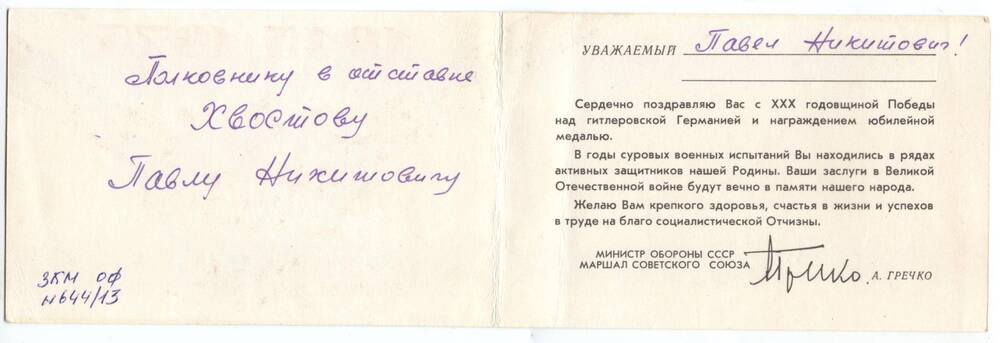 Полковнику в отставке
Хвостову
Павлу Никитовичу
ЗКМ ОФ
№644/13
УВАЖАЕМЫЙ Павел Никитович!
Сердечно поздравляю Вас с XXX годовщиной Победы
над гитлеровской Германией и награждением юбилейной
медалью.
В годы суровых военных испытаний Вы находились в рядах
активных защитников нашей Родины. Ваши заслуги в Великой
Отечественной войне будут вечно в памяти нашего народа.
Желаю Вам крепкого здоровья, счастья в жизни и успехов
в труде на благо социалистической Отчизны.
МИНИСТР ОБОРОНЫ СССР
МАРШАЛ СОВЕТСКОГО СОЮЗА Гречко А. ГРЕЧКО